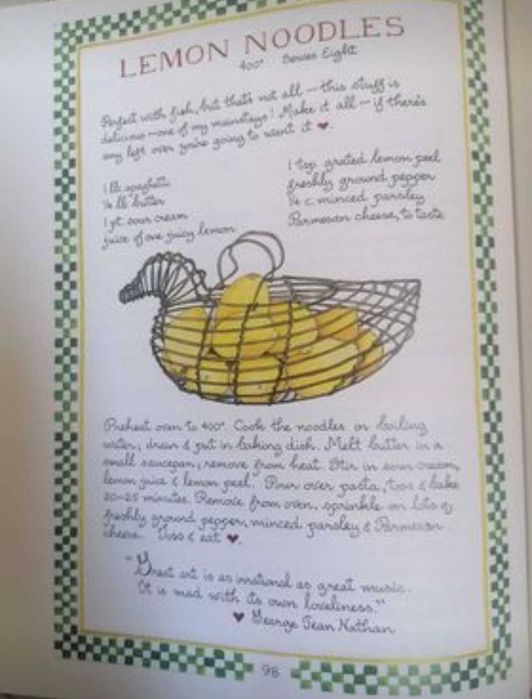 LEMON NOODLES
400° Serves Eight
Perfect with fish, but that's not all — this stuff is
delicious — one of my mainstays! Make it all — if there's
any left over you're going to want it ♥.
1 lb. spaghetti
¼ lb. butter
1 pt. sour cream
juice of one juicy lemon
1 tsp. grated lemon peel
freshly ground pepper
¼ c. minced parsley
Parmesan cheese, to taste
Preheat oven to 400°. Cook the noodles in boiling
water; drain & put in baking dish. Melt butter in a
small saucepan; remove from heat. Stir in sour cream,
lemon juice & lemon peel. Pour over pasta, toss & bake
20-25 minutes. Remove from oven, sprinkle on lots of
freshly ground pepper, minced parsley & Parmesan
cheese. Toss & eat ♥.
"Great art is as irrational as great music.
It is mad with its own loveliness."
♥ George Jean Nathan
98